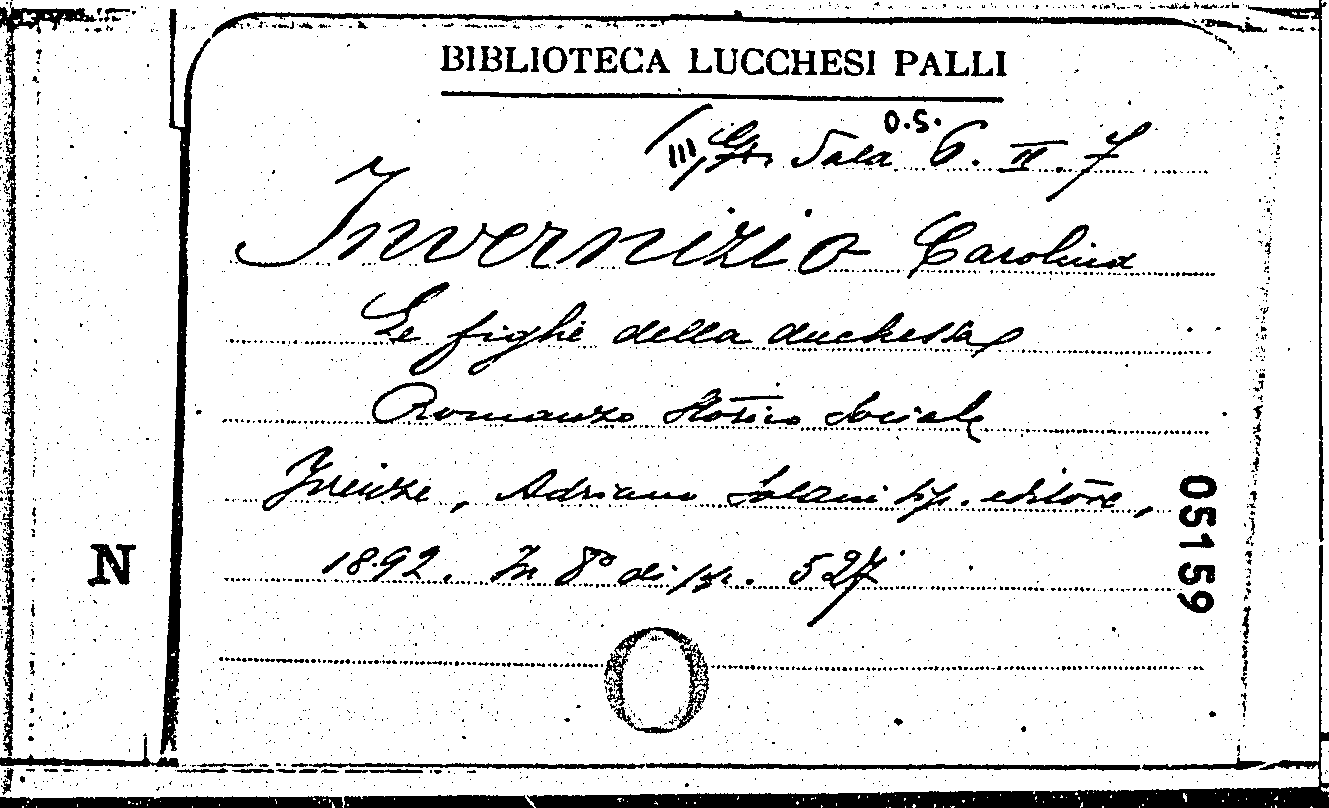 BIBLIOTECA LUCCHESI PALLI
O.S.
III, Sala 6. II. 7
Invernizio Carolina
Le figlie della duchessa
Romanzo storico sociale
Firenze, Adriano Salani tip. editore,
1892. In 8° di pp. 527
05159
N